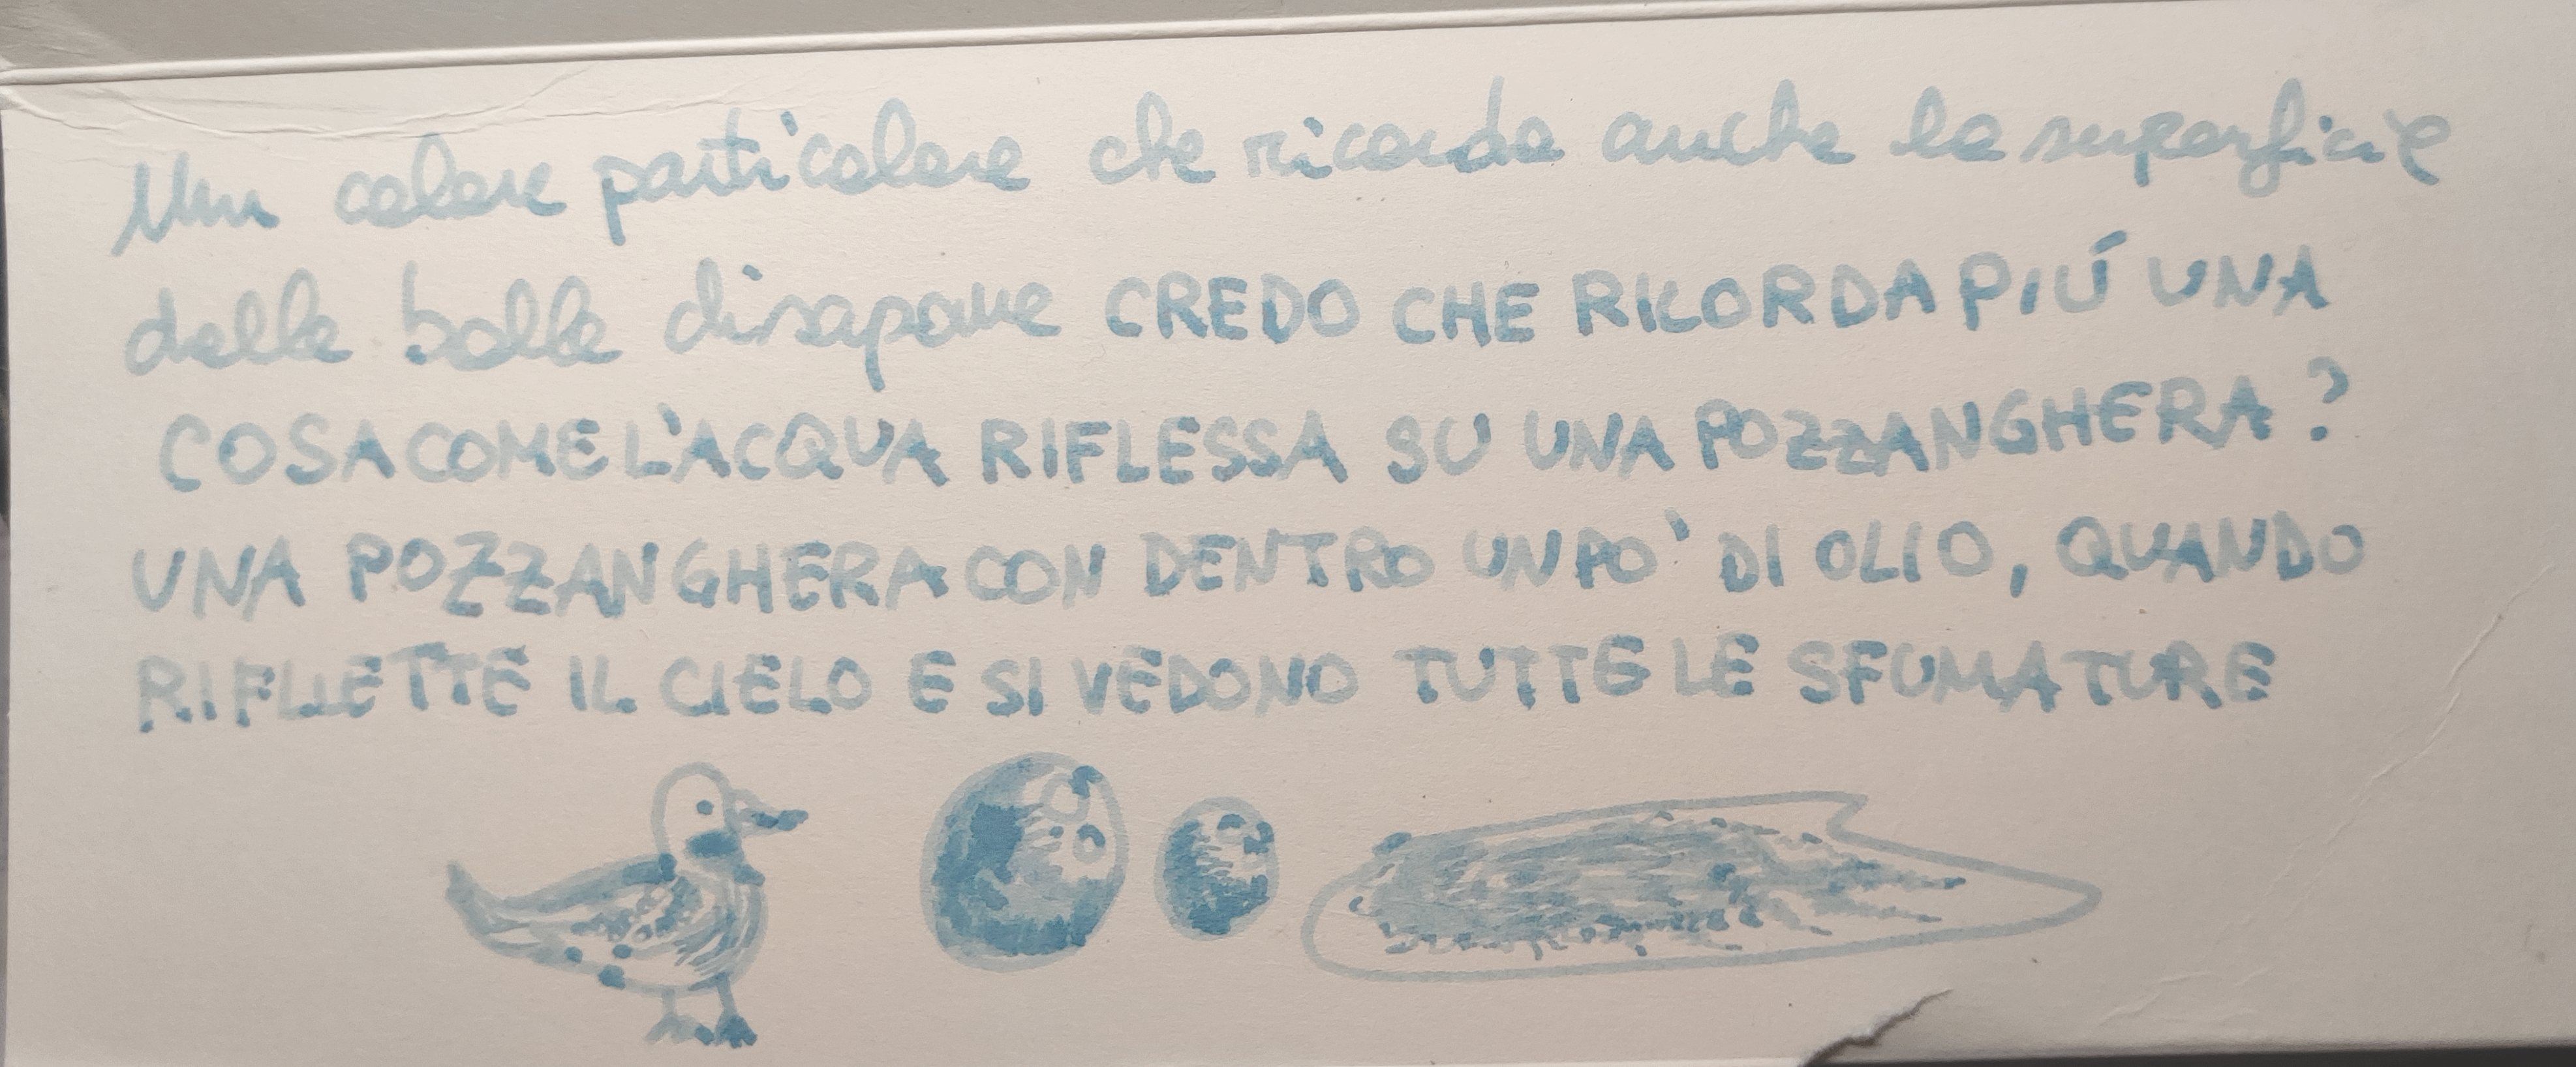 Un colore particolare che ricorda anche la superficie
delle bolle di sapone CREDO CHE RICORDA PIÚ UNA
COSA COME L'ACQUA RIFLESSA SU UNA POZZANGHERA?
UNA POZZANGHERA CON DENTRO UN PO' DI OLIO, QUANDO
RIFLLETTE IL CIELO E SI VEDONO TUTTE LE SFUMATURE